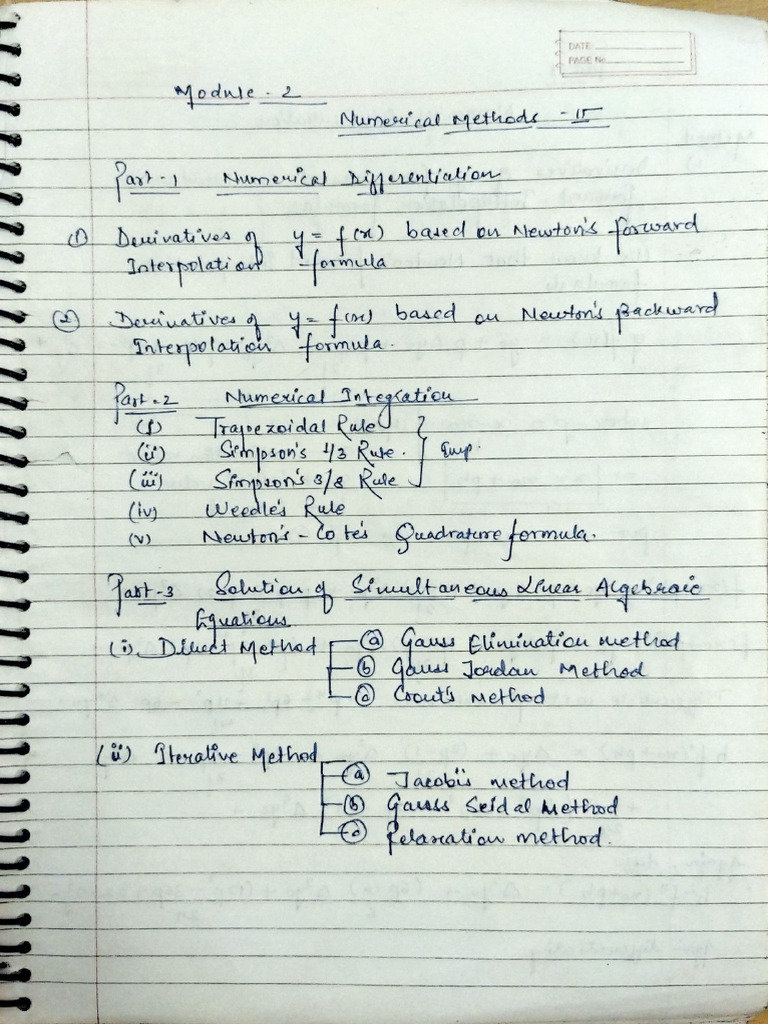 DATE
PAGE No.
Module - 2
Numerical Methods - II
Part - 1 Numerical Differentiation
(1) Derivatives of y = f(x) based on Newton's forward
Interpolation formula
(2) Derivatives of y = f(x) based on Newton's Backward
Interpolation formula.
Part - 2 Numerical Integration
(i) Trapezoidal Rule
(ii) Simpson's 1/3 Rule. } Imp.
(iii) Simpson's 3/8 Rule
(iv) Weedle's Rule
(v) Newton's - Cote's Quadrature formula.
Part - 3 Solution of Simultaneous Linear Algebraic
Equations
(i) Direct Method (a) Gauss Elimination method
(b) Gauss Jordan Method
(c) Crout's Method
(ii) Iterative Method
(a) Jacobi's method
(b) Gauss Seidal Method
(c) Relaxation method.